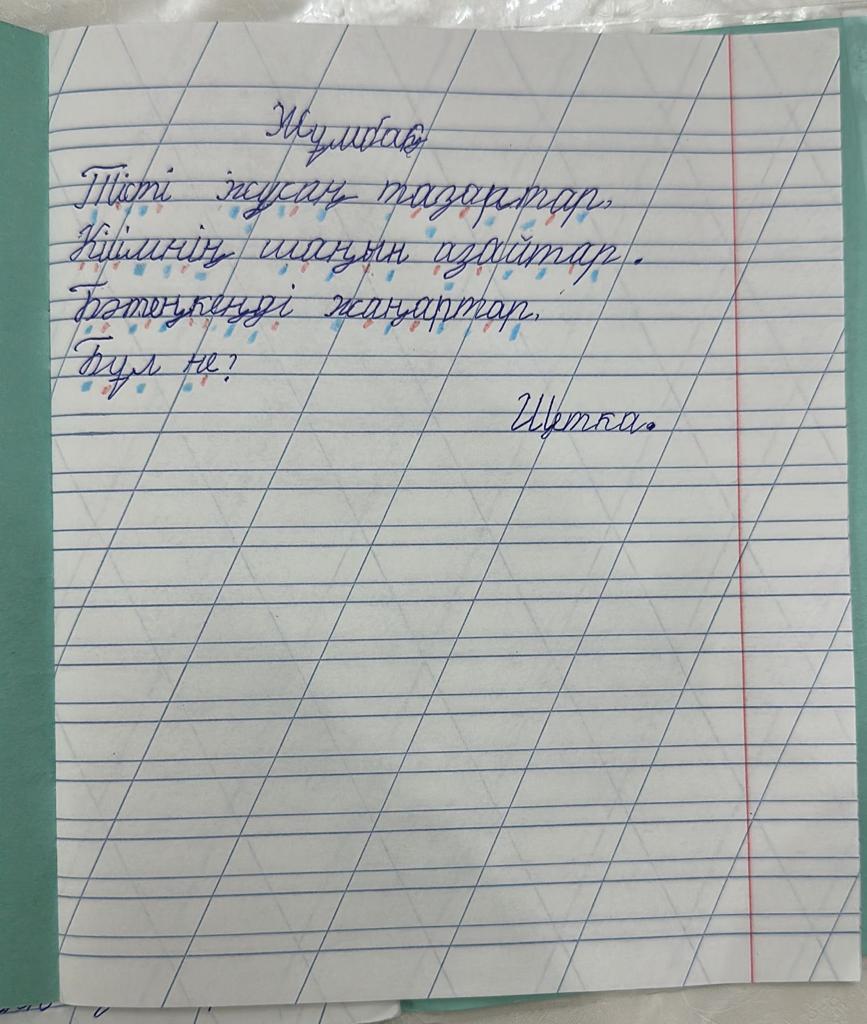 Жұмбақ
Тісті жусаң тазартар.
Киімнің шаңын азайтар.
Бәтеңкеңді жаңартар.
Бұл не?
Щетка.